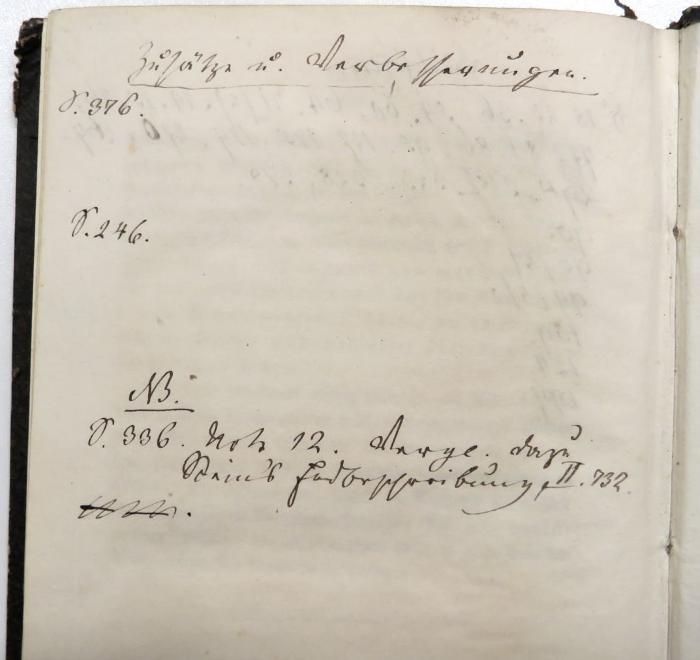 Zusätze u. Verbesserungen.
S. 376.
S. 246.
NB.
S. 336. Note 12. Vergl. dazu
Stein's Erdbeschreibung, II. 732.